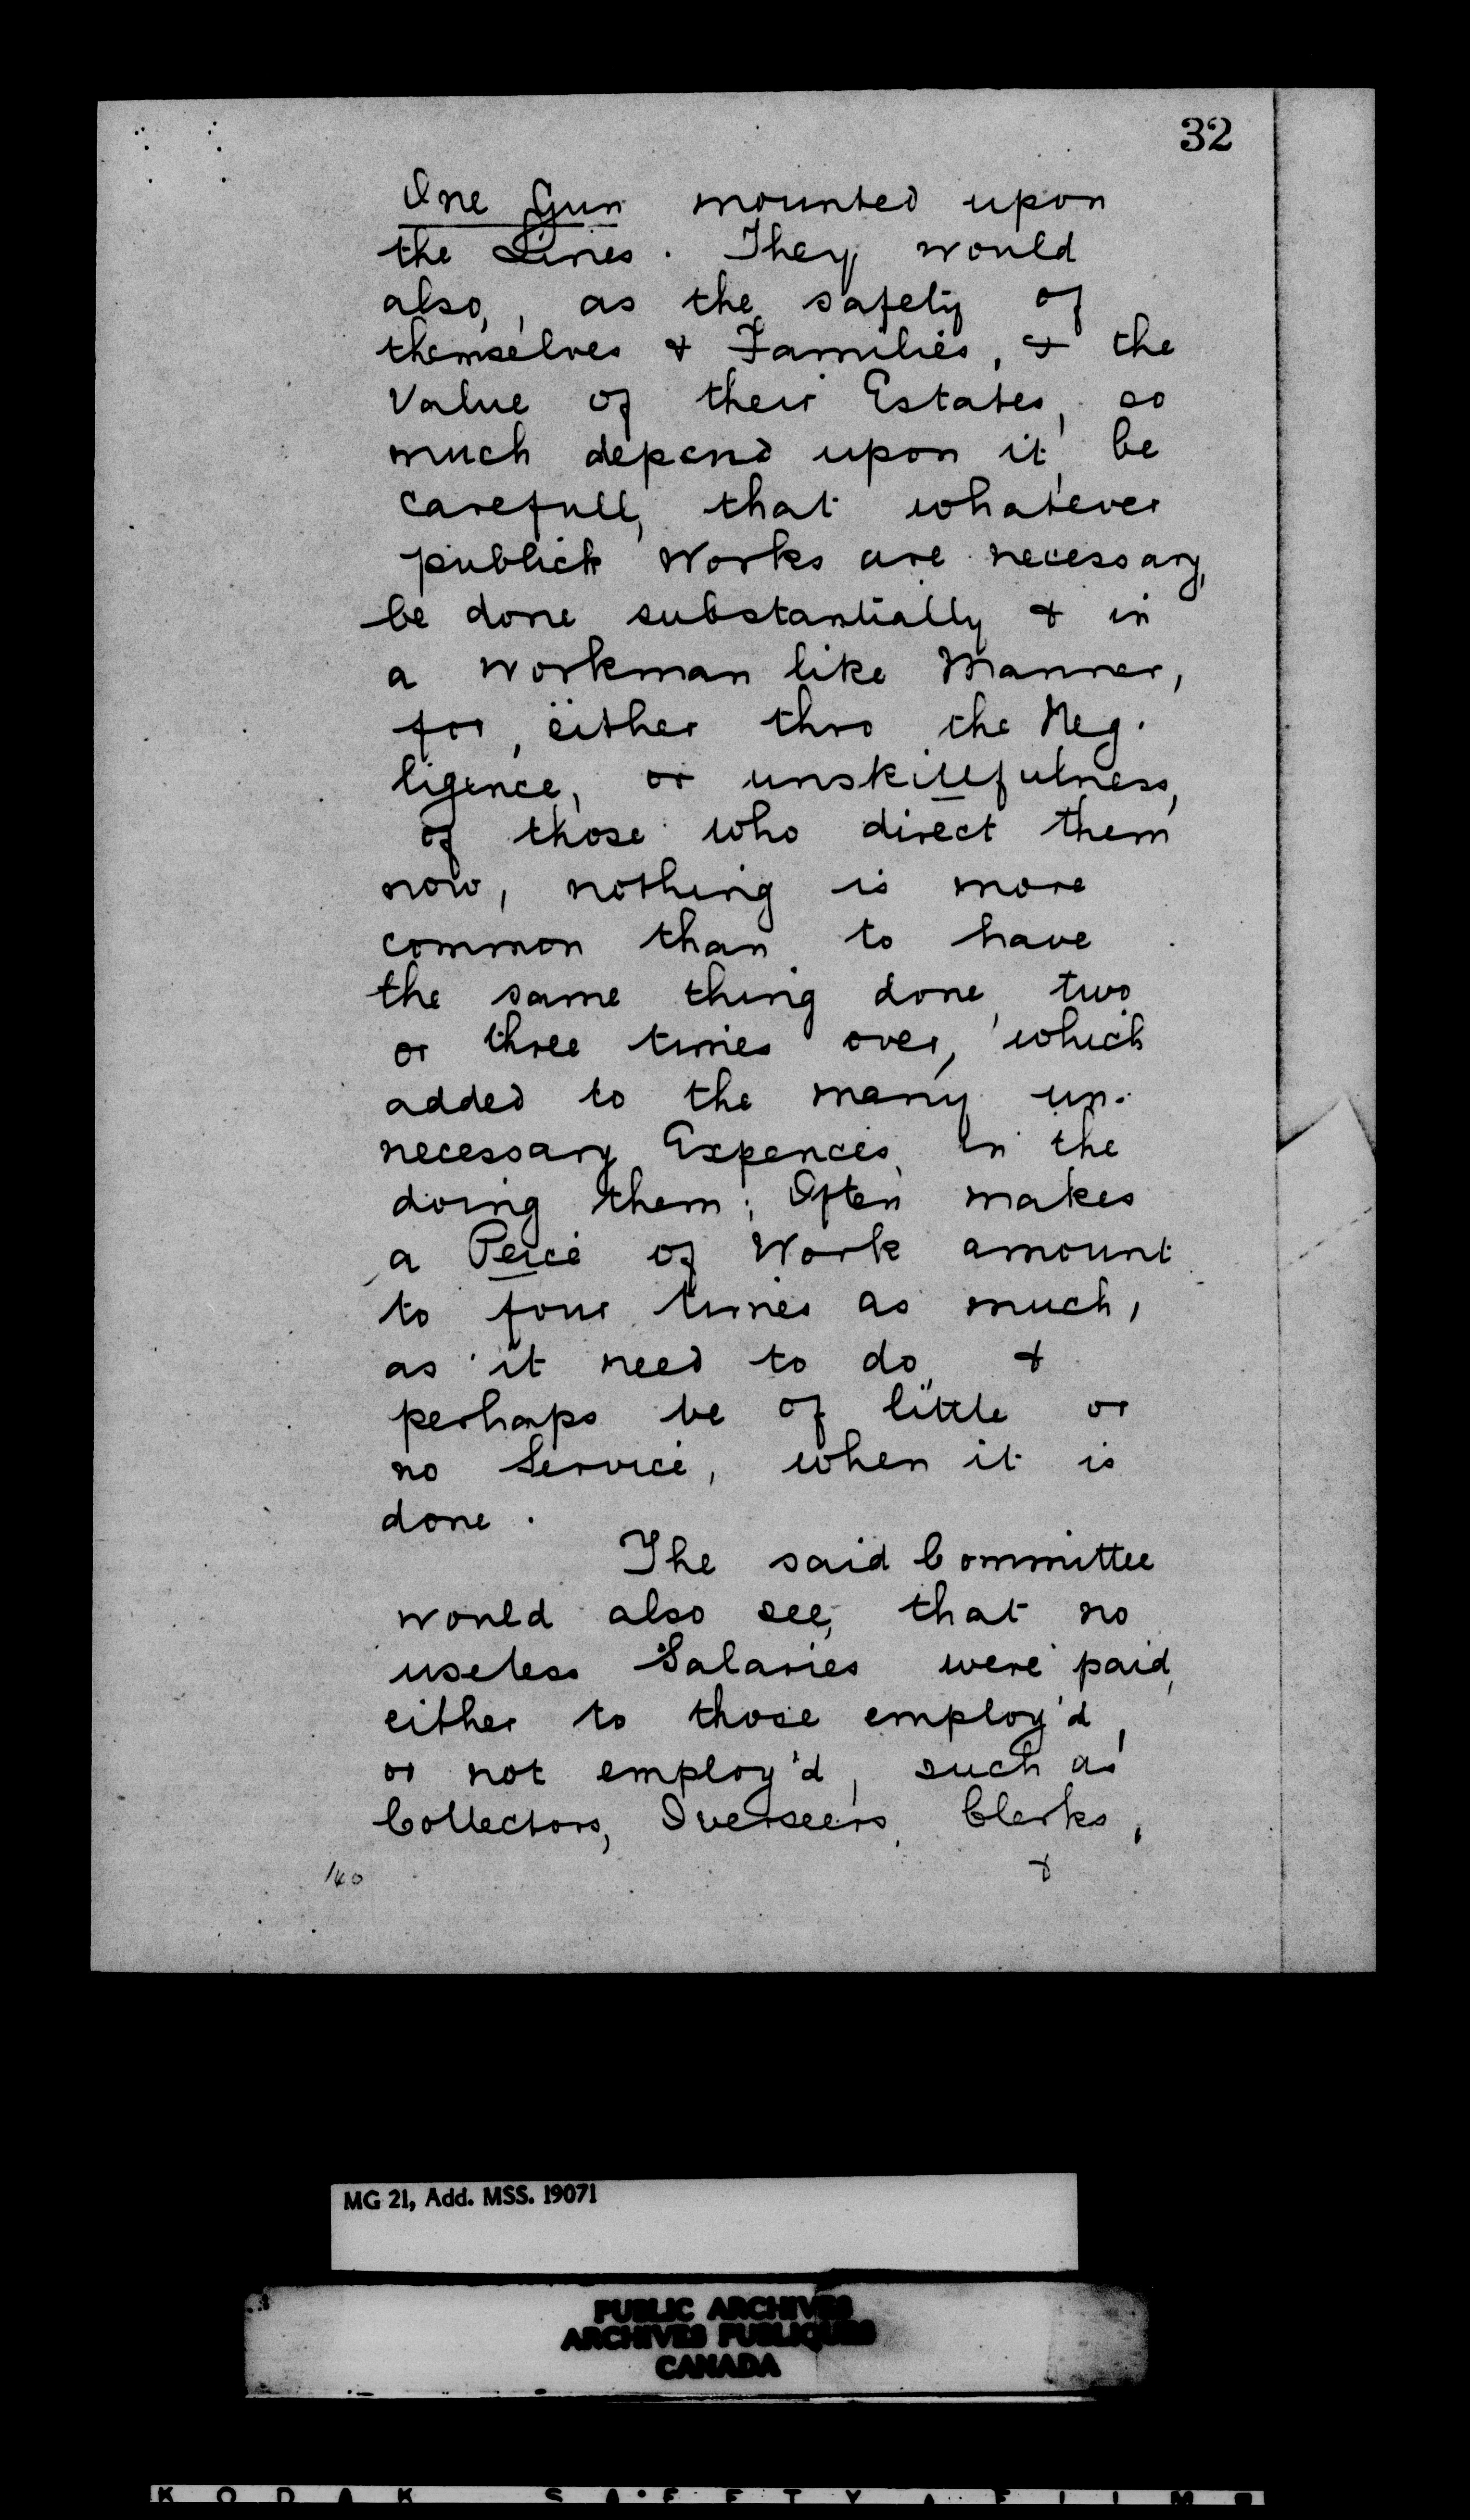 32
One Gun mounted upon
the Lines. They would
also, as the safety of
themselves & Families, & the
Value of their Estates, so
much depend upon it, be
carefull, that whatever
publick Works are necessary,
be done substantially & in
a Workman like Manner,
for, either thro the Neg-
ligence, or unskillfulness,
of those who direct them
now, nothing is more
common than to have
the same thing done, two
or three times over, which
added to the many un-
necessary Expences, in the
doing them; Often makes
a Peice of Work amount
to four times as much,
as it need to do, &
perhaps be of little or
no Service, when it is
done.
The said Committee
would also see, that no
useless Salaries were paid,
either to those employ'd,
or not employ'd, such as
Collectors, Overseers, Clerks,
&
140
MG 21, Add. MSS. 19071
PUBLIC ARCHIVES
ARCHIVES PUBLIQUES
CANADA
KODAK SAFETY FILM